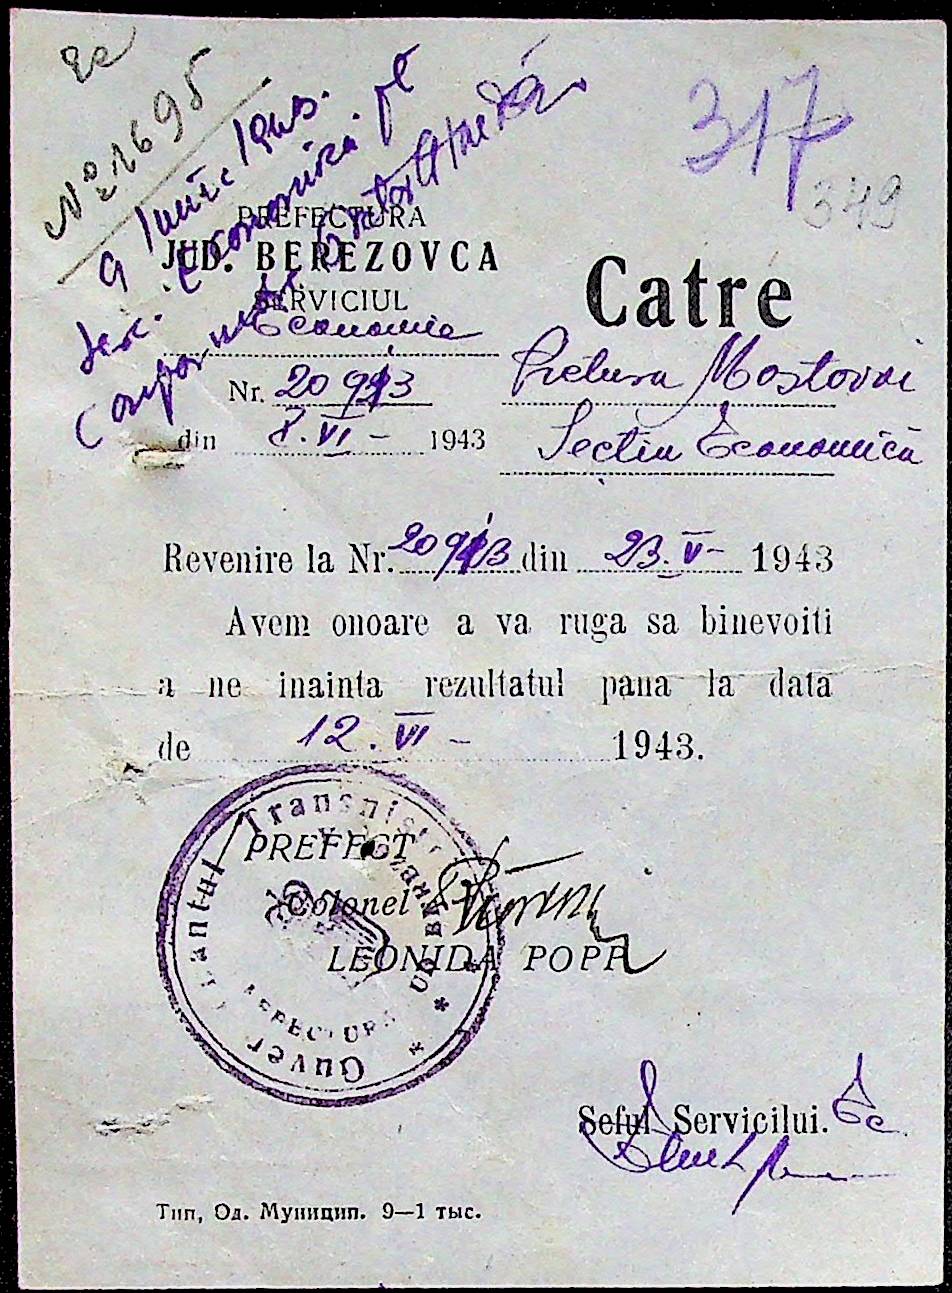 Nº 2695
317
349
9 Iunie 1943.
PREFECTURA
JUD. BEREZOVCA
SERVICIUL
Economic
Nr. 20913
din 8.VI- 1943
Catre
Pretura Mostovoi
Secția Economică
Revenire la Nr. 20913 din 23.V- 1943
Avem onoare a va ruga sa binevoiti
a ne inainta rezultatul pana la data
de 12.VI- 1943.
PREFECT
Colonel
LEONIDA POPP
Guvernamantul Transnistriei
PREFECTURA JUD BEREZOVCA
Seful Serviciului. Ec
Тип, Од. Муницип. 9—1 тыс.